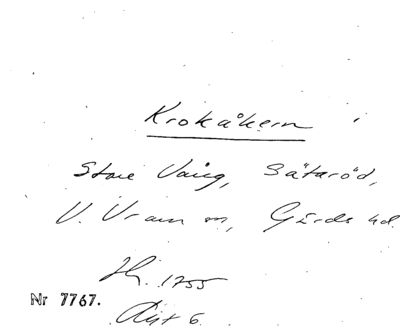 Krokåkern
Store Vång, Sätaröd,
V. Vram sn, Gärds hd.
1755
Nr 7767.
Akt 6